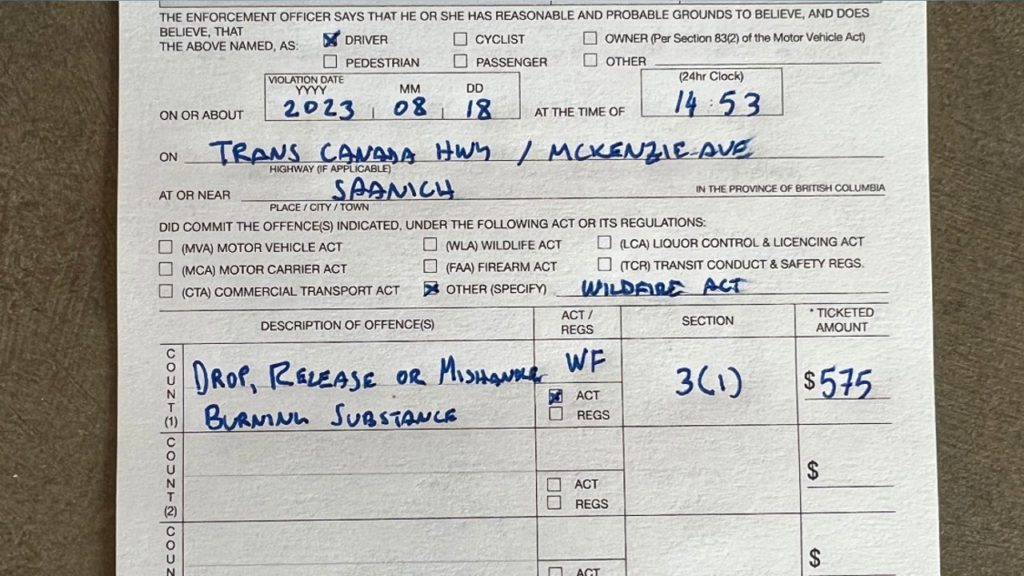 THE ENFORCEMENT OFFICER SAYS THAT HE OR SHE HAS REASONABLE AND PROBABLE GROUNDS TO BELIEVE, AND DOES
BELIEVE, THAT
THE ABOVE NAMED, AS:
DRIVER CYCLIST OWNER (Per Section 83(2) of the Motor Vehicle Act)
PEDESTRIAN PASSENGER OTHER
VIOLATION DATE
YYYY MM DD (24hr Clock)
ON OR ABOUT 2023 08 18 AT THE TIME OF 14:53
ON TRANS CANADA HWY / MCKENZIE AVE
HIGHWAY (IF APPLICABLE)
AT OR NEAR SAANICH IN THE PROVINCE OF BRITISH COLUMBIA
PLACE / CITY / TOWN
DID COMMIT THE OFFENCE(S) INDICATED, UNDER THE FOLLOWING ACT OR ITS REGULATIONS:
(MVA) MOTOR VEHICLE ACT (WLA) WILDLIFE ACT (LCA) LIQUOR CONTROL & LICENCING ACT
(MCA) MOTOR CARRIER ACT (FAA) FIREARM ACT (TCR) TRANSIT CONDUCT & SAFETY REGS.
(CTA) COMMERCIAL TRANSPORT ACT OTHER (SPECIFY) WILDFIRE ACT
DESCRIPTION OF OFFENCE(S) ACT / REGS SECTION * TICKETED AMOUNT
COUNT (1) DROP, RELEASE OR MISHANDLE WF 3(1) $575
BURNING SUBSTANCE ACT
REGS
COUNT (2) $
ACT
REGS
COUN $
ACT